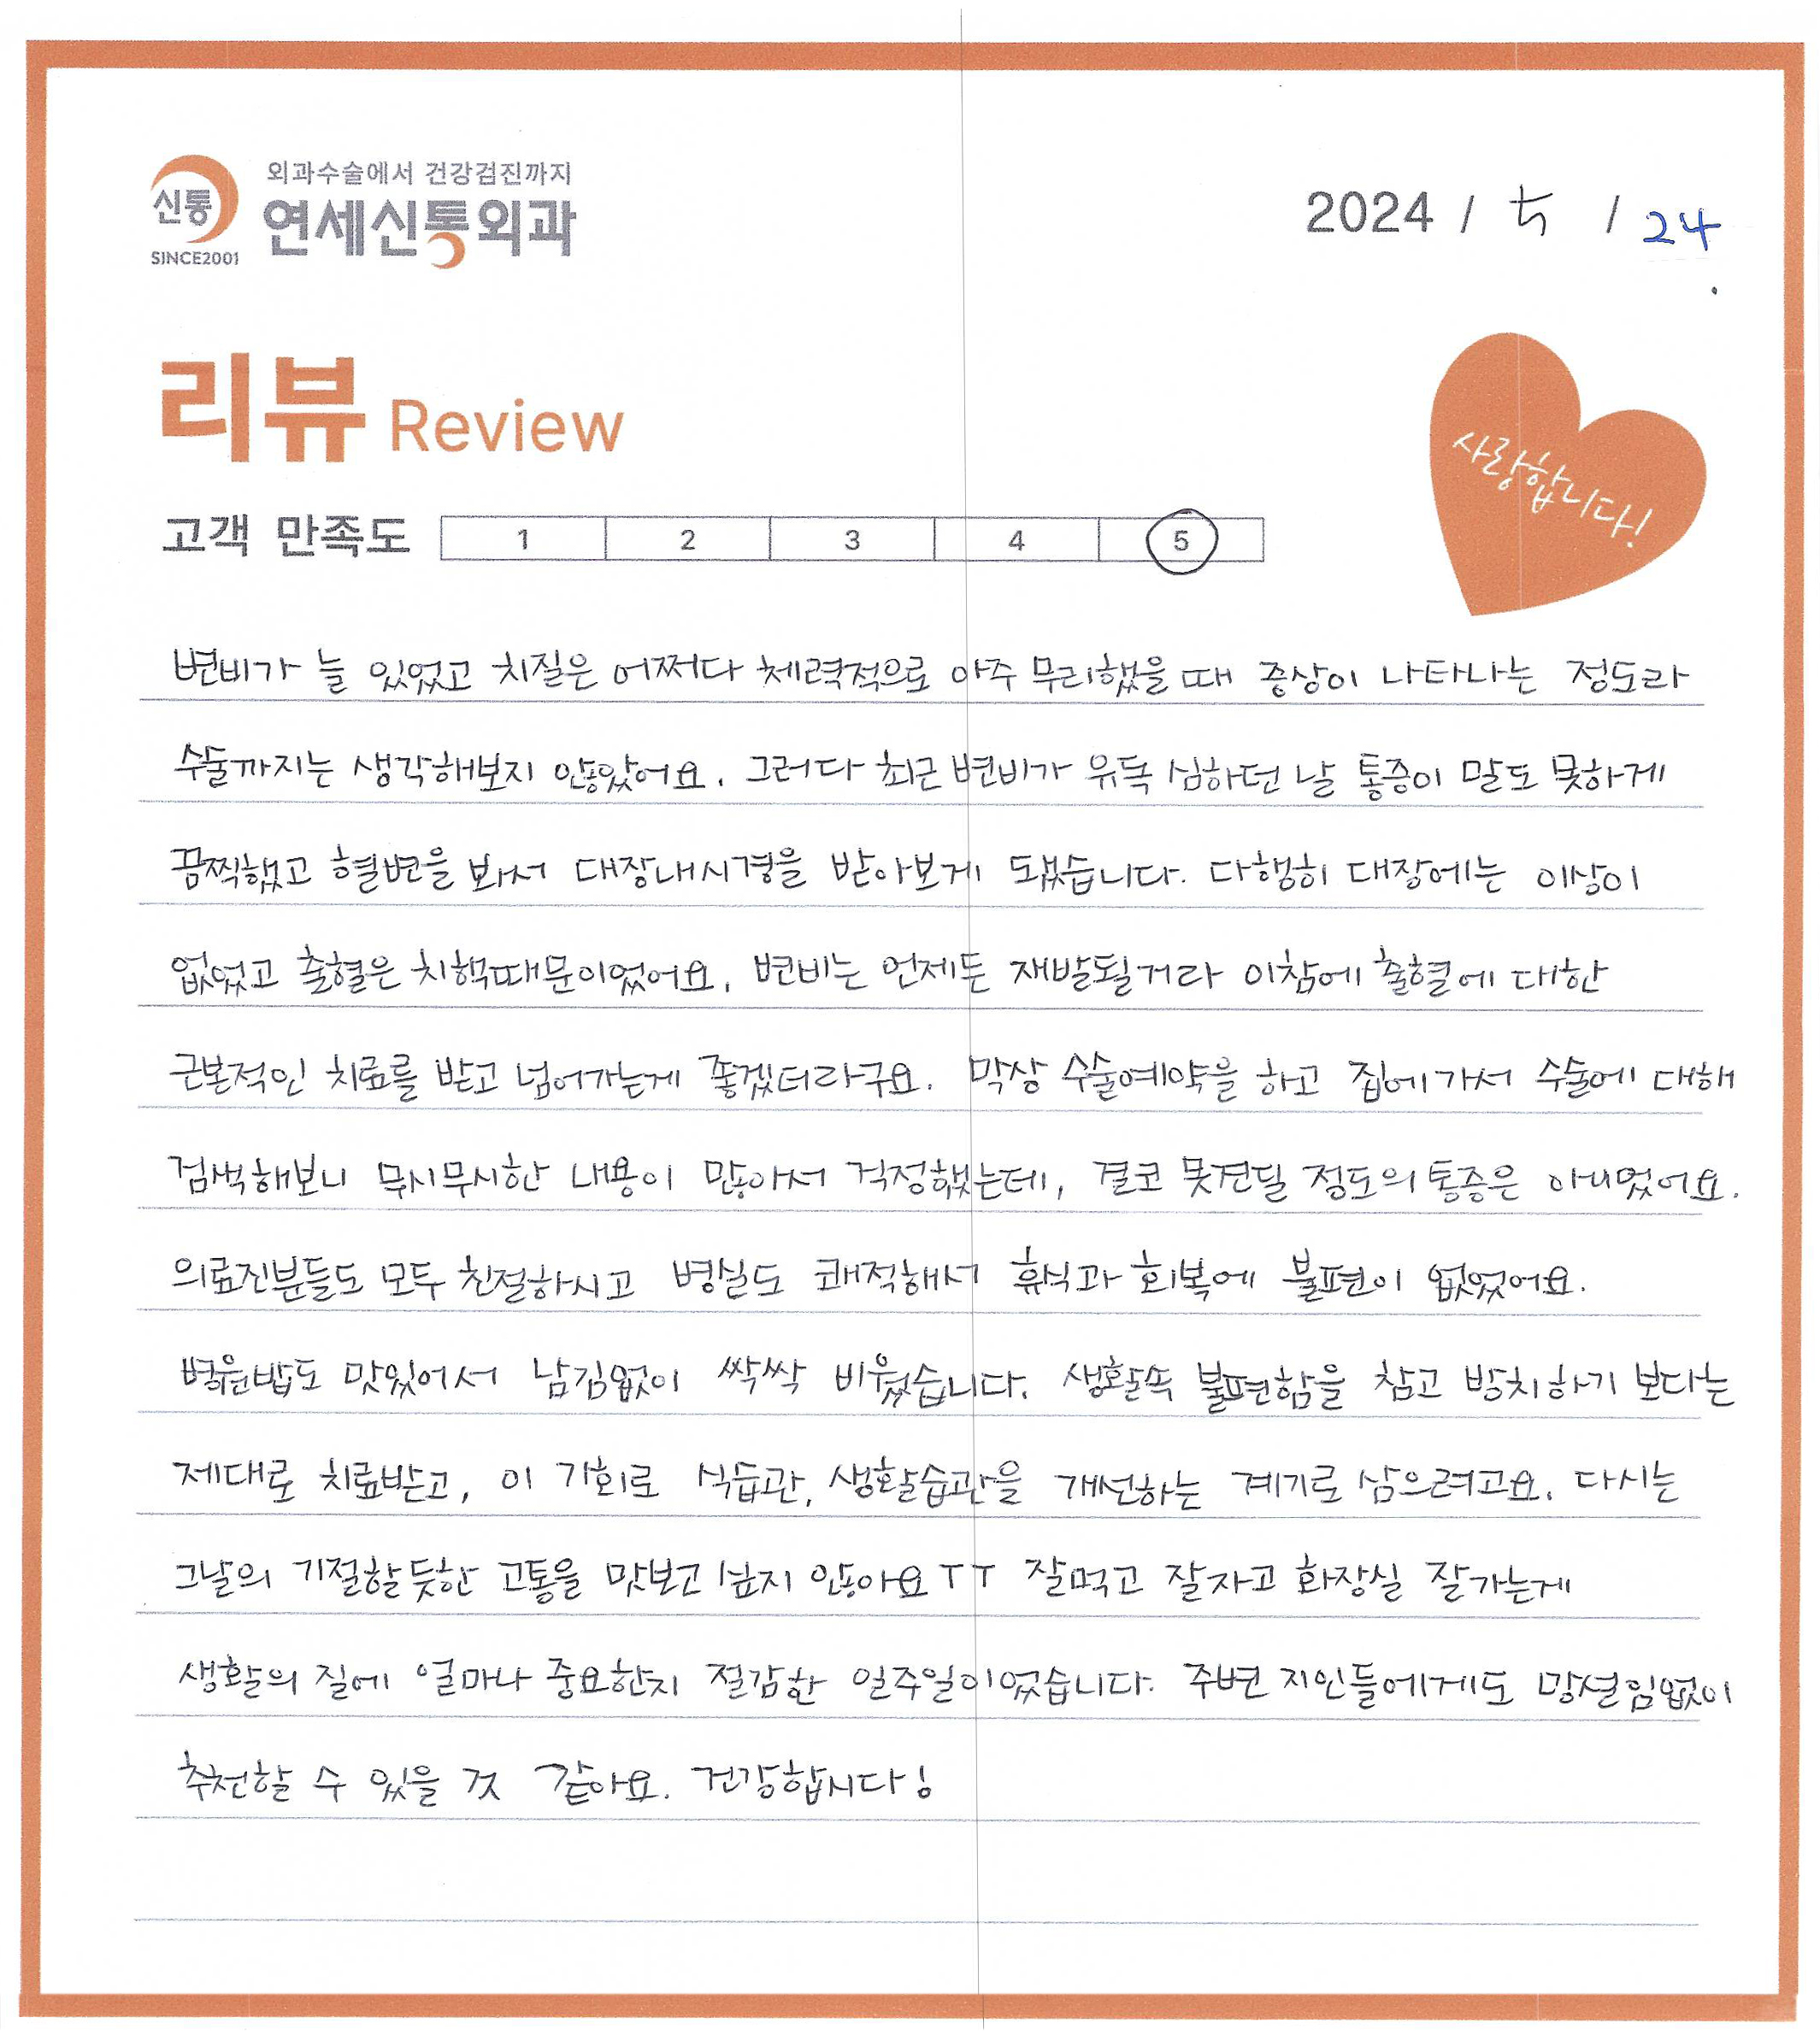 신통
SINCE2001
외과수술에서 건강검진까지
연세신통외과
2024 / 5 / 24.
리뷰 Review
사랑합니다!
고객 만족도 1 2 3 4 5
변비가 늘 있었고 치질은 어쩌다 체력적으로 아주 무리했을 때 증상이 나타나는 정도라
수술까지는 생각해보지 않았어요. 그러다 최근 변비가 유독 심하던 날 통증이 말도 못하게
끔찍했고 혈변을 봐서 대장내시경을 받아보게 됐습니다. 다행히 대장에는 이상이
없었고 출혈은 치핵때문이었어요. 변비는 언제든 재발될거라 이참에 출혈에 대한
근본적인 치료를 받고 넘어가는게 좋겠더라구요. 막상 수술예약을 하고 집에가서 수술에 대해
검색해보니 무시무시한 내용이 많아서 걱정했는데, 결코 못견딜 정도의 통증은 아니였어요.
의료진분들도 모두 친절하시고 병실도 쾌적해서 휴식과 회복에 불편이 없었어요.
병원밥도 맛있어서 남김없이 싹싹 비웠습니다. 생활속 불편함을 참고 방치하기 보다는
제대로 치료받고, 이 기회로 식습관, 생활습관을 개선하는 계기로 삼으려고요. 다시는
그날의 기절할듯한 고통을 맛보고 싶지 않아요 ㅜㅜ 잘먹고 잘자고 화장실 잘가는게
생활의 질에 얼마나 중요한지 절감한 일주일이었습니다. 주변 지인들에게도 망설임없이
추천할 수 있을 것 같아요. 건강합시다!